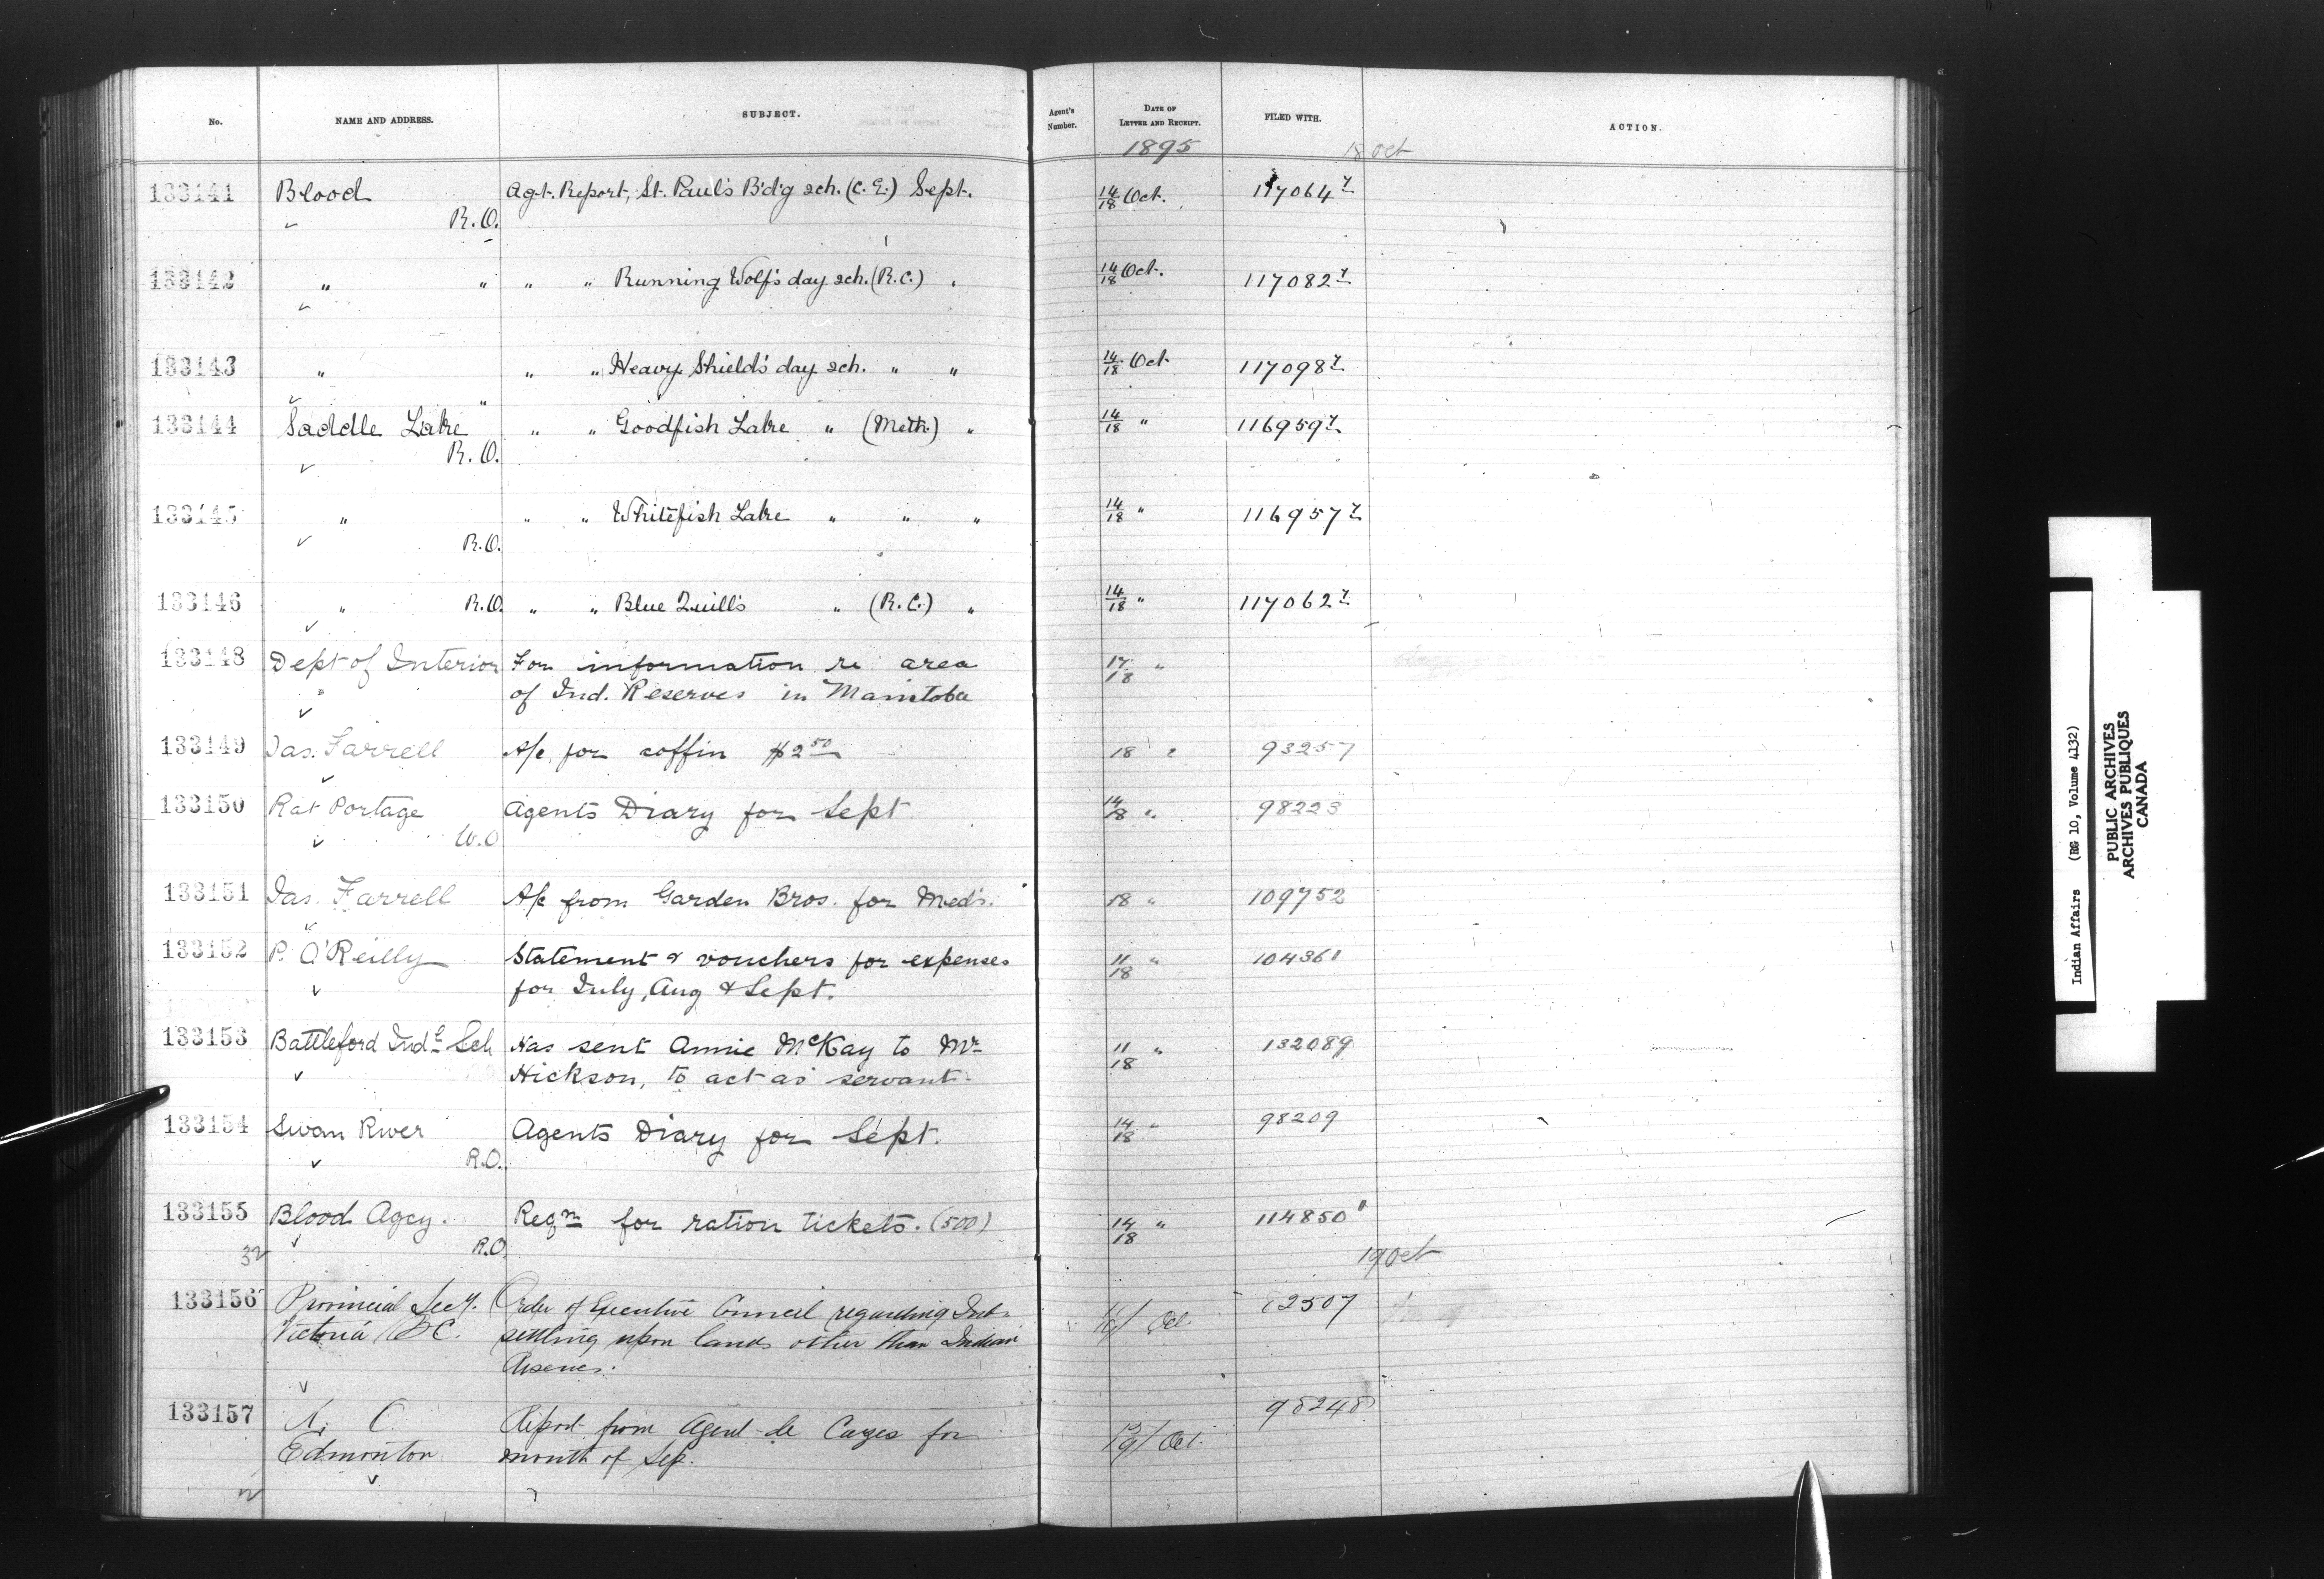 No. NAME AND ADDRESS. SUBJECT. Agent's Number. DATE OF LETTER AND RECEIPT. FILED WITH. ACTION.
1895 18 Oct
133141 Blood Agt. Report, St. Paul's B'd'g sch. (C.E.) Sept. 14/18 Oct. 117064
" R.O.
133142 " " " " Running Wolf's day sch. (R.C.) " 14/18 Oct. 117082
133143 " " " " Heavy Shield's day sch. " " 14/18 Oct 117098
133144 Saddle Lake " " Goodfish Lake " (Meth.) " 14/18 " 116959
R.O.
133145 " " " Whitefish Lake " " " 14/18 " 116957
R.O.
133146 " R.O. " " Blue Quill's " (R.C.) " 14/18 " 117062
133148 Dept of Interior For information re area 17/18 "
" of Ind. Reserves in Manitoba
133149 Jas. Farrell A/c for coffin $2 50 18 " 93257
133150 Rat Portage Agents Diary for Sept 14/18 " 98223
W.O
133151 Jas. Farrell A/c from Garden Bros. for Meds. 18 " 109752
133152 P. O'Reilly Statement & vouchers for expenses 11/18 " 104361
for July, Aug & Sept.
133153 Battleford Indl Sch Has sent Annie McKay to Mr 11/18 " 132089
Hickson, to act as servant.
133154 Swan River Agents Diary for Sept. 14/18 " 98209
R.O.
133155 Blood Agcy. Reqn for ration tickets. (500) 14/18 " 114850
32 R.O. 19 Oct
133156 Provincial Secy. Order of Executive Council regarding Inds 12507
Victoria BC. settling upon lands other than Indian Oct
Reserves.
133157 Report from Agent de Cazes for 98248
Edmonton month of Sep. Oct.
Indian Affairs (RG 10, Volume 4132)
PUBLIC ARCHIVES
ARCHIVES PUBLIQUES
CANADA